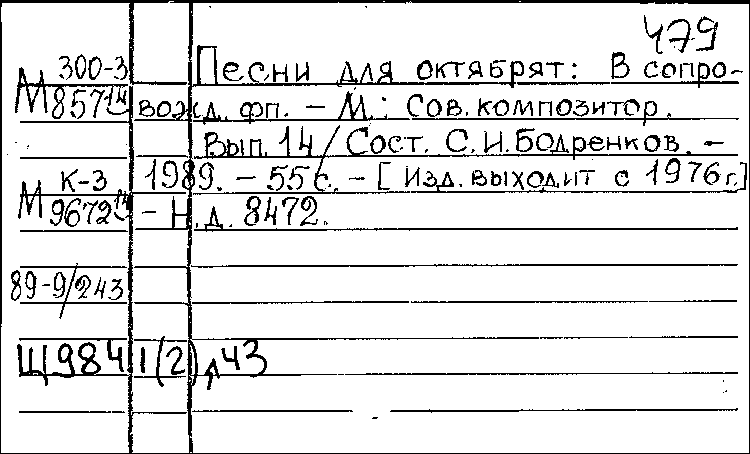 479
300-3 Песни для октябрят: В сопро-
М 857/14 вожд. фп. - М.: Сов. композитор.
Вып. 14 / Сост. С. И. Бодренков. -
К-3 1989. - 55 с. - [Изд. выходит с 1976 г.]
М 9672/14 - Н.д. 8472.
89-9/243
Щ984 1(2)л43